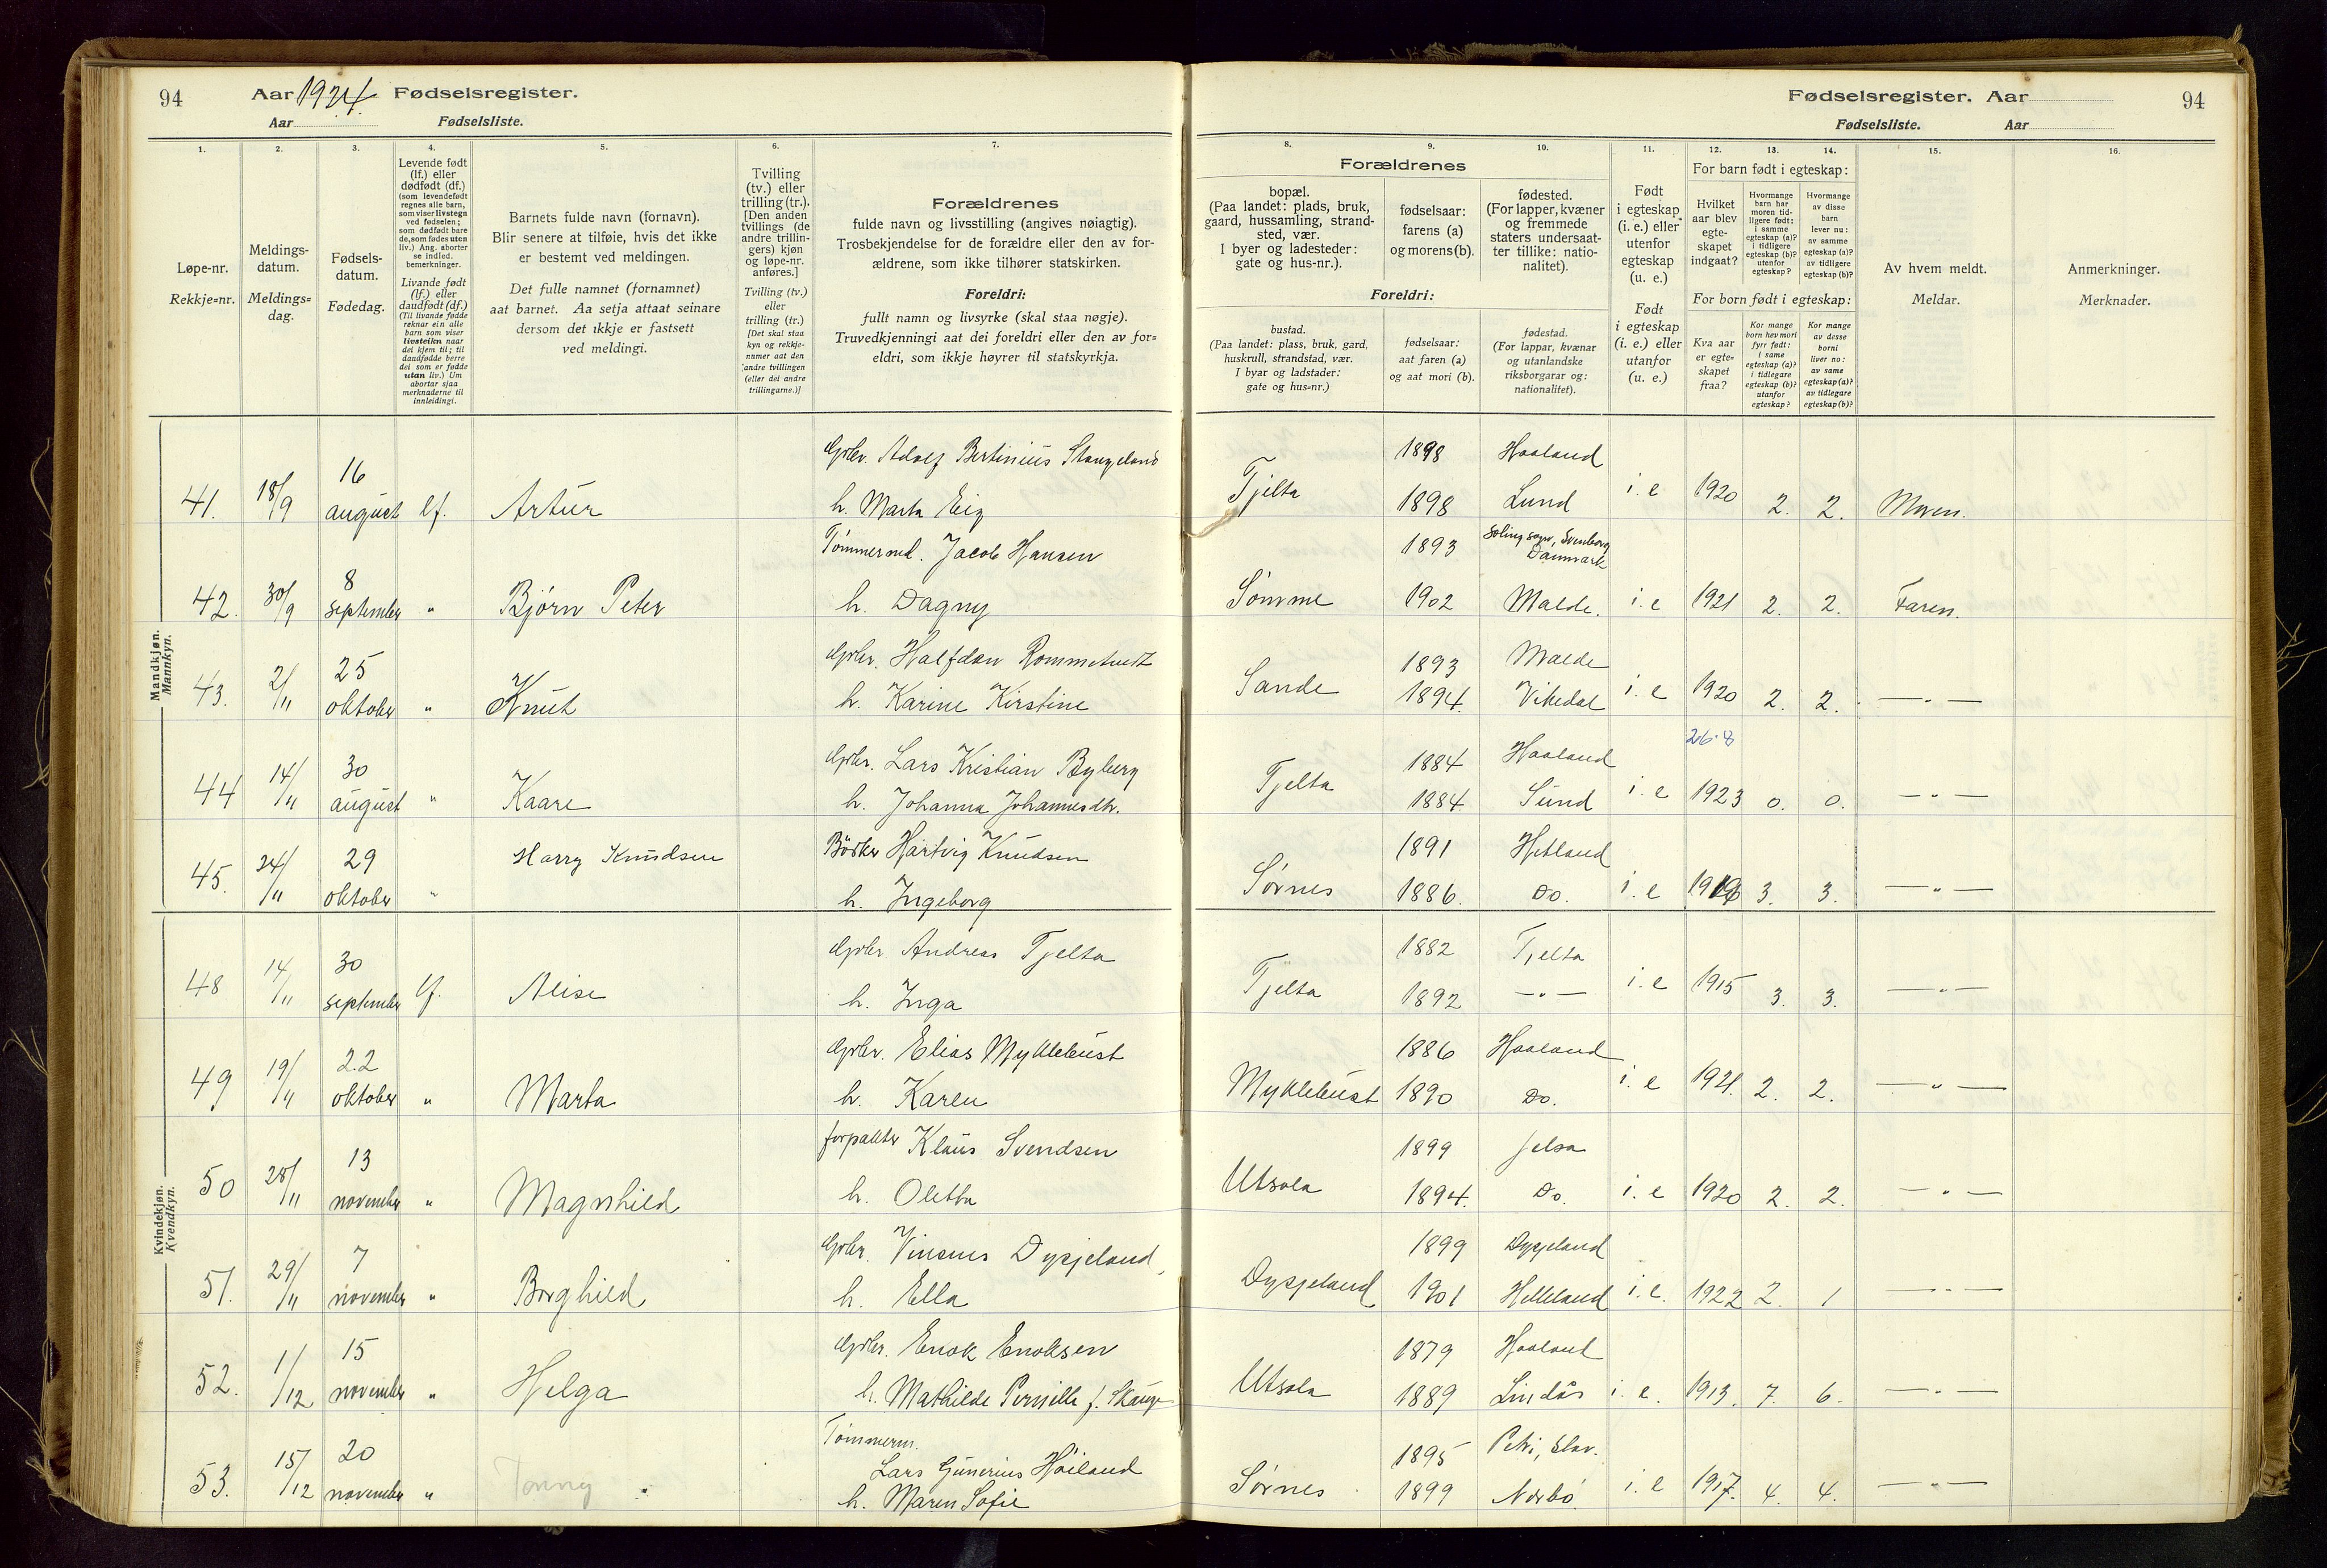 94 Aar 1924. Fødselsregister.
Aar Fødselsliste.
Fødselsregister. Aar 94
Fødselsliste. Aar
1. 2. 3. 4. 5. 6. 7. 8. 9. 10. 11. 12. 13. 14. 15. 16.
Løpe-nr.
Rekkje=nr.
Meldings-
datum.
Meldings=
dag.
Fødsels-
datum.
Fødedag.
Levende født
(lf.) eller
dødfødt (df.)
(som levendefødt
regnes alle barn,
som viser livstegn
ved fødselen;
som dødfødt bare
de, som fødes uten
liv.) Ang. aborter
se indled.
bemerkninger.
Livande født
(lf.) eller
daudfødt (df.)
(Til livande fødde
reknar ein alle
barn som viser
livsteikn naar
dei kjem til; til
daudfødde berre
dei som er fødde
utan liv.) Um
abortar sjaa
merknaderne til
innleidingi.
Barnets fulde navn (fornavn).
Blir senere at tilføie, hvis det ikke
er bestemt ved meldingen.
Det fulle namnet (fornamnet)
aat barnet. Aa setja attaat seinare
dersom det ikkje er fastsett
ved meldingi.
Tvilling
(tv.) eller
trilling (tr.).
[Den anden
tvillings (de
andre trillin-
gers) kjøn
og løpe-nr.
anføres.]
Tvilling (tv.)
eller
trilling (tr.)
[Det skal staa
kyn og rekkje-
numer aat den
andre tvillingen
(eller dei andre
trillingarne.)]
Forældrenes
fulde navn og livsstilling (angives nøiagtig).
Trosbekjendelse for de forældre eller den av for-
ældrene, som ikke tilhører statskirken.
Foreldri:
fullt namn og livsyrke (skal staa nøgje).
Truvedkjenningi aat dei foreldri eller den av for=
eldri, som ikkje høyrer til statskyrkja.
Forældrenes
bopæl.
(Paa landet: plads, bruk,
gaard, hussamling, strand-
sted, vær.
I byer og ladesteder:
gate og hus-nr.).
fødselsaar:
farens (a)
og morens (b).
fødested.
(For lapper, kvæner
og fremmede
staters undersaat-
ter tillike: natio-
nalitet).
Foreldri:
bustad.
(Paa landet: plass, bruk, gard,
huskrull, strandstad, vær.
I byar og ladstader:
gate og hus=nr.)
fødselsaar:
aat faren (a)
og aat mori (b).
fødestad.
(For lappar, kvænar
og utanlandske
riksborgarar og:
nationalitet).
Født
i egteskap
(i. e.) eller
utenfor
egteskap
(u. e.)
Født
i egteskap
(i. e.) eller
utanfor
(u. e.)
For barn født i egteskap:
Hvilket
aar blev
egte-
skapet
indgaat?
Hvormange
barn har
moren tid-
ligere født:
i samme
egteskap (a)?
i tidligere
egteskap (b)?
utenfor
egteskap?
Hvormange
av disse
barn
lever nu:
av samme
egteskap (a)?
av tidligere
egteskap (b)?
For born født i egteskap:
Kva aar
er egte-
skapet
fraa?
Kor mange
born hev mori
fyrr født:
i same
egteskap (a)?
i tidlegare
egteskap (b)?
utanfor
egteskap?
Kor mange
av desse
borni
liver no:
av same
egteskap (a)?
av tidlegare
egteskap (b)?
Av hvem meldt.
Meldar.
Anmerkninger.
Merknader.
Mandkjøn.
Mannkyn.
Gbr. Adolf Bertinius Stangeland 1898 Haaland
41. 18/9 16 august lf. Artur h. Marta Eig Tjelta 1898 Lund i. e 1920 2. 2. Moren.
Tømmermd. Jacob Hansen 1893 sogn, Svenborg Danmark
42. 30/9 8 september " Bjørn Peter h. Dagny Sømme 1902 Malde. i. e 1921 2. 2. Faren.
Gbr. Halfdan Rommetvedt 1893 Malde
43. 2/11 25 oktober " Knut h. Karine Kirstine Sande 1894. Vikedal i. e 1920 2. 2. — " —
Gbr. Lars Kristian Byberg 1884 Haaland 26.8
44 14/11 30 august " Kaare h. Johanna Johannesdtr. Tjelta 1884. Sund i. e 1923 0. 0. — " —
Bødker Hartvig Knudsen 1891 Hetland
45. 24/11 29 oktober " Harry Knudsen h. Ingeborg Sørnes 1886. Do. i. e 1916 3. 3. — " —
Kvindekjøn.
Kvendkyn.
Gbr. Andreas Tjelta 1882 Tjelta
48 14/11 30 september lf. Alise h. Inga Tjelta 1892 — " — i. e 1915 3. 3. — " —
Gbr. Elias Myklebust 1886 Haaland
49 19/11 22 oktober " Marta h. Karen Myklebust 1890 Do. i. e 1921. 2. 2. — " —
forpakter Klaus Svendsen 1899 Jelsa
50 28/11 13 november " Magnhild h. Oletta Utsola 1894. Do. i. e 1920 2. 2. — " —
Gbr. Vinsens Dysjeland, 1899 Dysjeland
51. 29/11 7 november " Borghild h. Ella Dysjeland 1901 Helleland i. e. 1922 2. 1 — " —
Gbr. Enok Enoksen 1879 Haaland
52. 1/12 15 november " Helga h. Mathilde Pernille f. Skauge Utsola 1889 Lindås i. e. 1913. 7. 6. — " —
Tømmerm. Lars Gunerius Høiland 1895 Petri, Stav.
53. 15/12 20 november " Tonny h. Maren Sofie Sørnes 1899 Nærbø i. e 1917. 4. 4. — " —